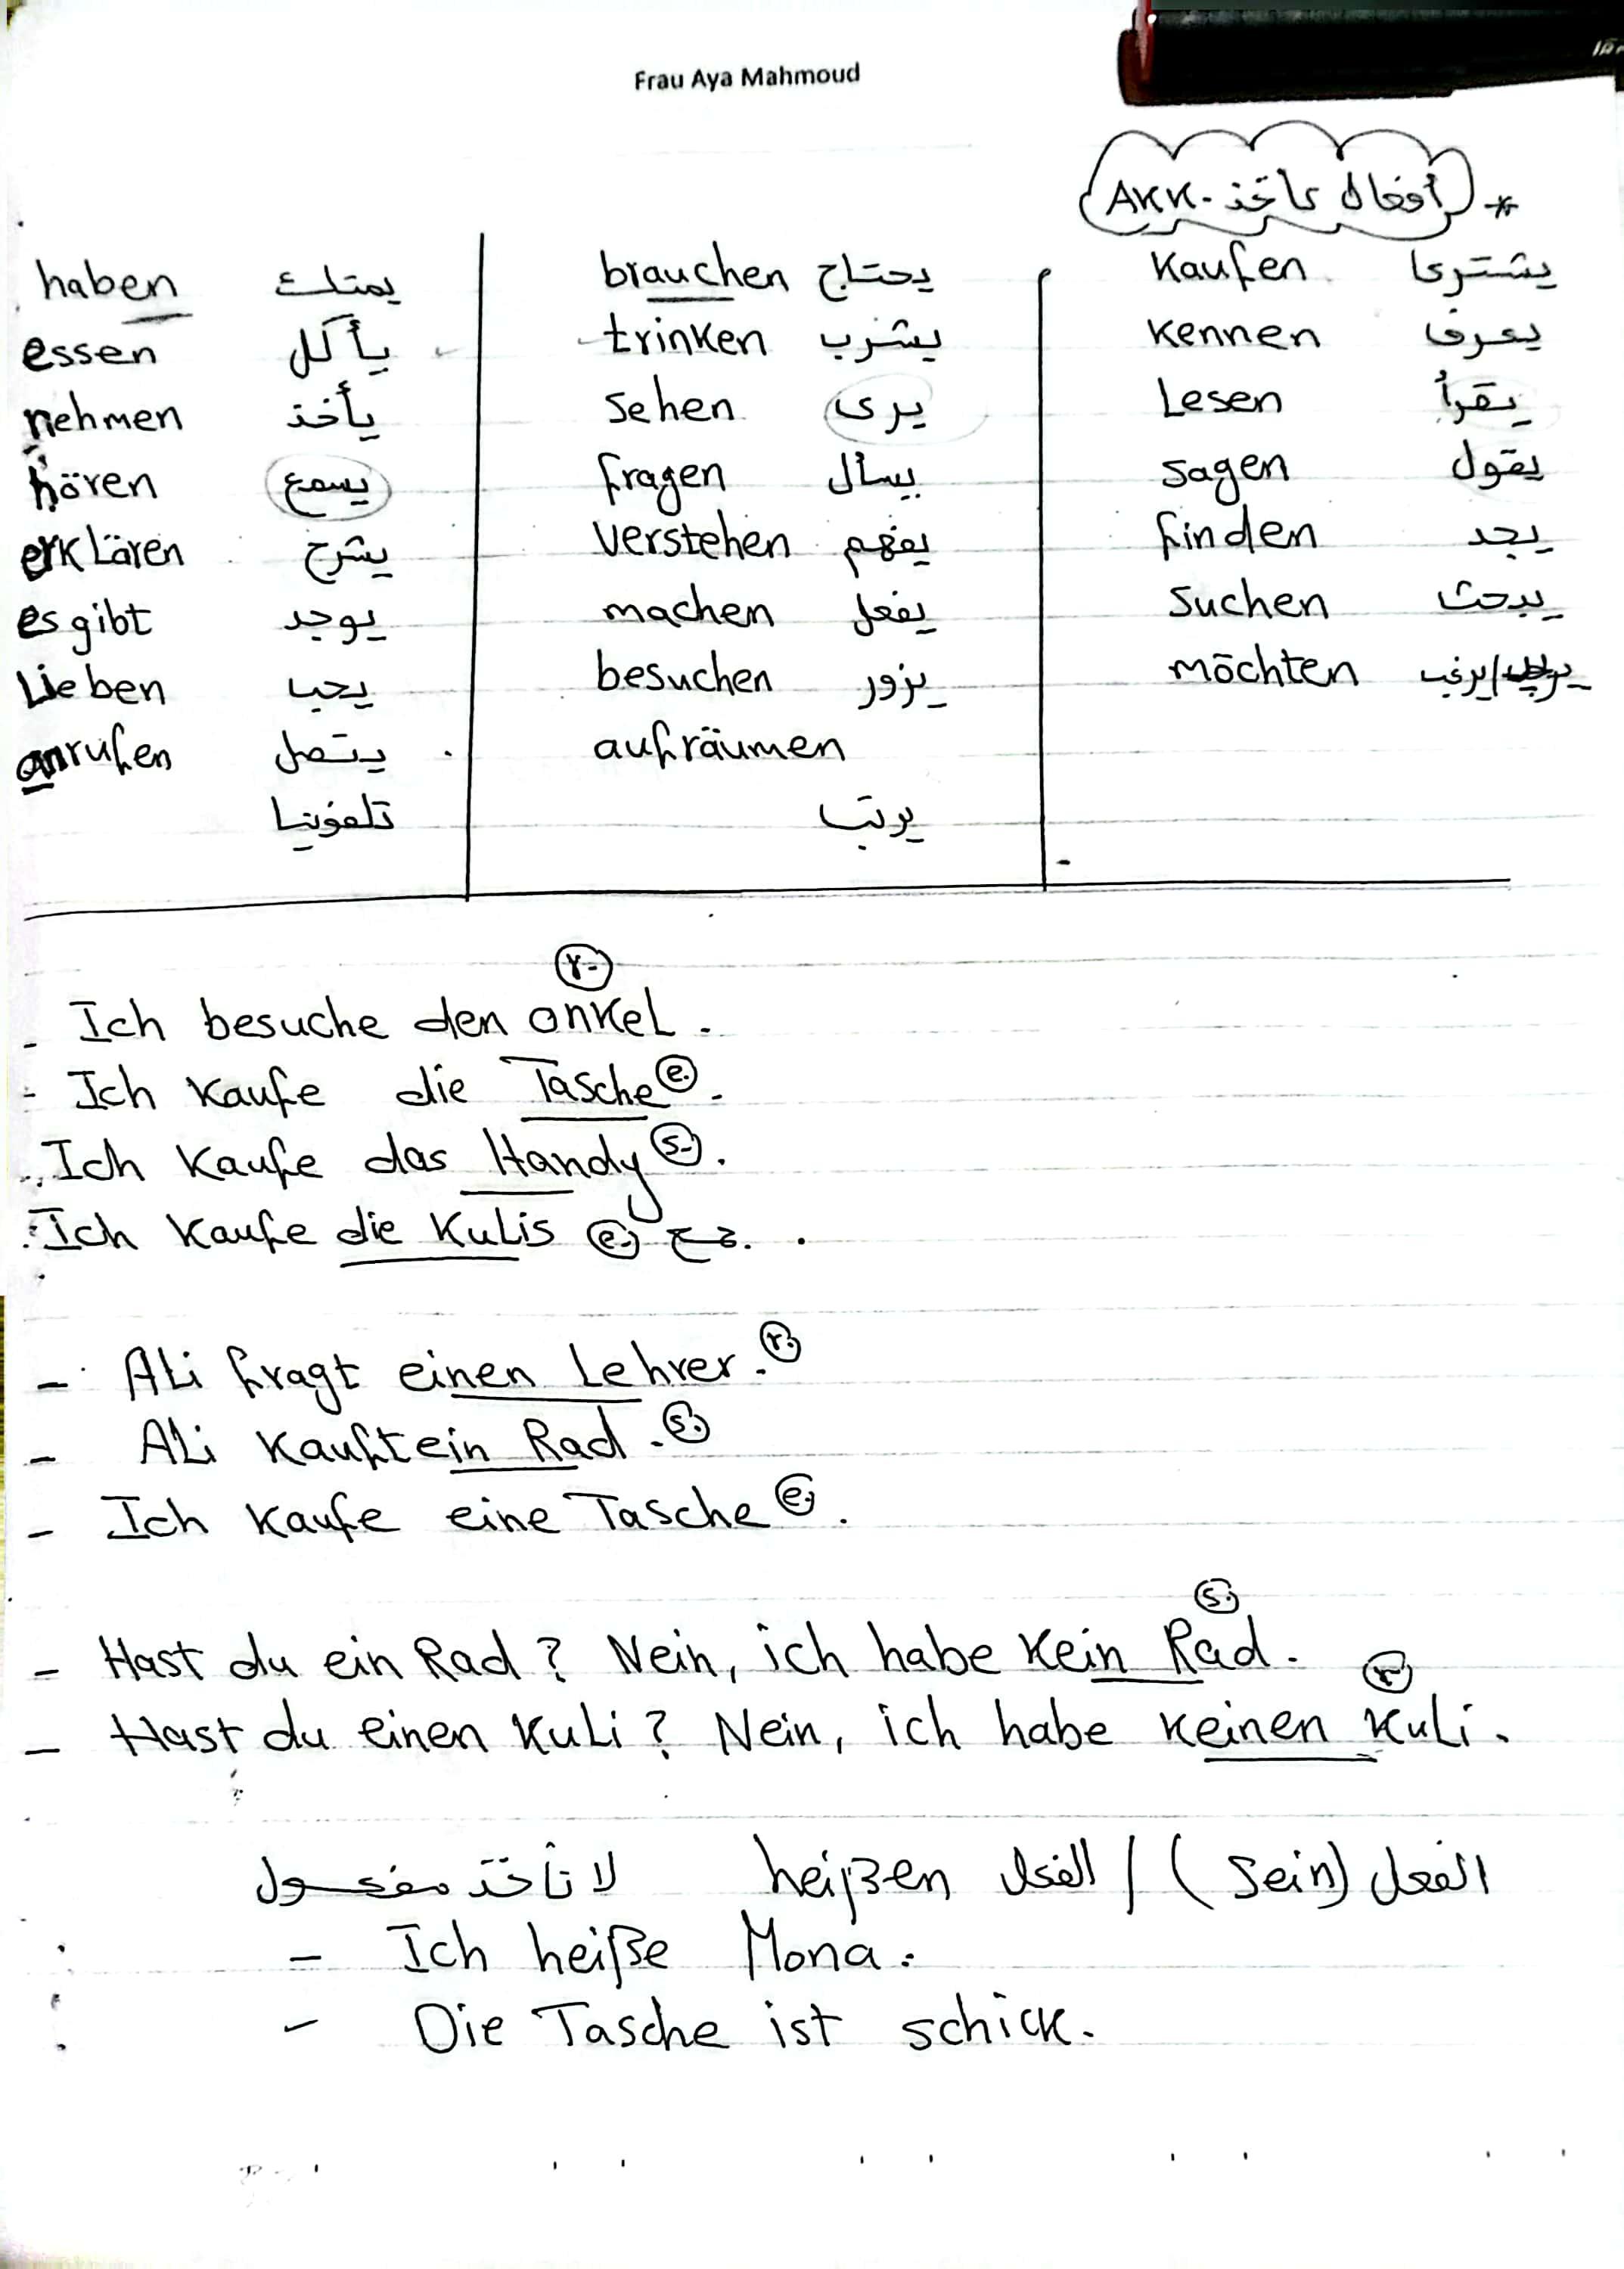 Frau Aya Mahmoud
* أفعال تأخذ AKK.
haben يمتلك
essen يأكل
nehmen يأخذ
hören يسمع
erklären يشرح
es gibt يوجد
Lieben يحب
anrufen يتصل
تلفونيا
brauchen يحتاج
trinken يشرب
sehen يرى
fragen يسأل
verstehen يفهم
machen يفعل
besuchen يزور
aufräumen
يرتب
Kaufen يشترى
Kennen يعرف
Lesen يقرأ
sagen يقول
finden يجد
suchen يبحث
möchten يرغب/
r.
- Ich besuche den onkel.
- Ich Kaufe die Tasche e.
- Ich Kaufe das Handy s.
- Ich Kaufe die Kulis e. جمع.
- Ali fragt einen Lehrer. r.
- Ali Kauft ein Rad. s.
- Ich Kaufe eine Tasche e.
s.
- Hast du ein Rad? Nein, ich habe Kein Rad.
r.
- Hast du einen Kuli? Nein, ich habe Keinen Kuli.
الفعل (sein) / الفعل heißen لا تأخذ مفعول
- Ich heiße Mona.
- Die Tasche ist schick.